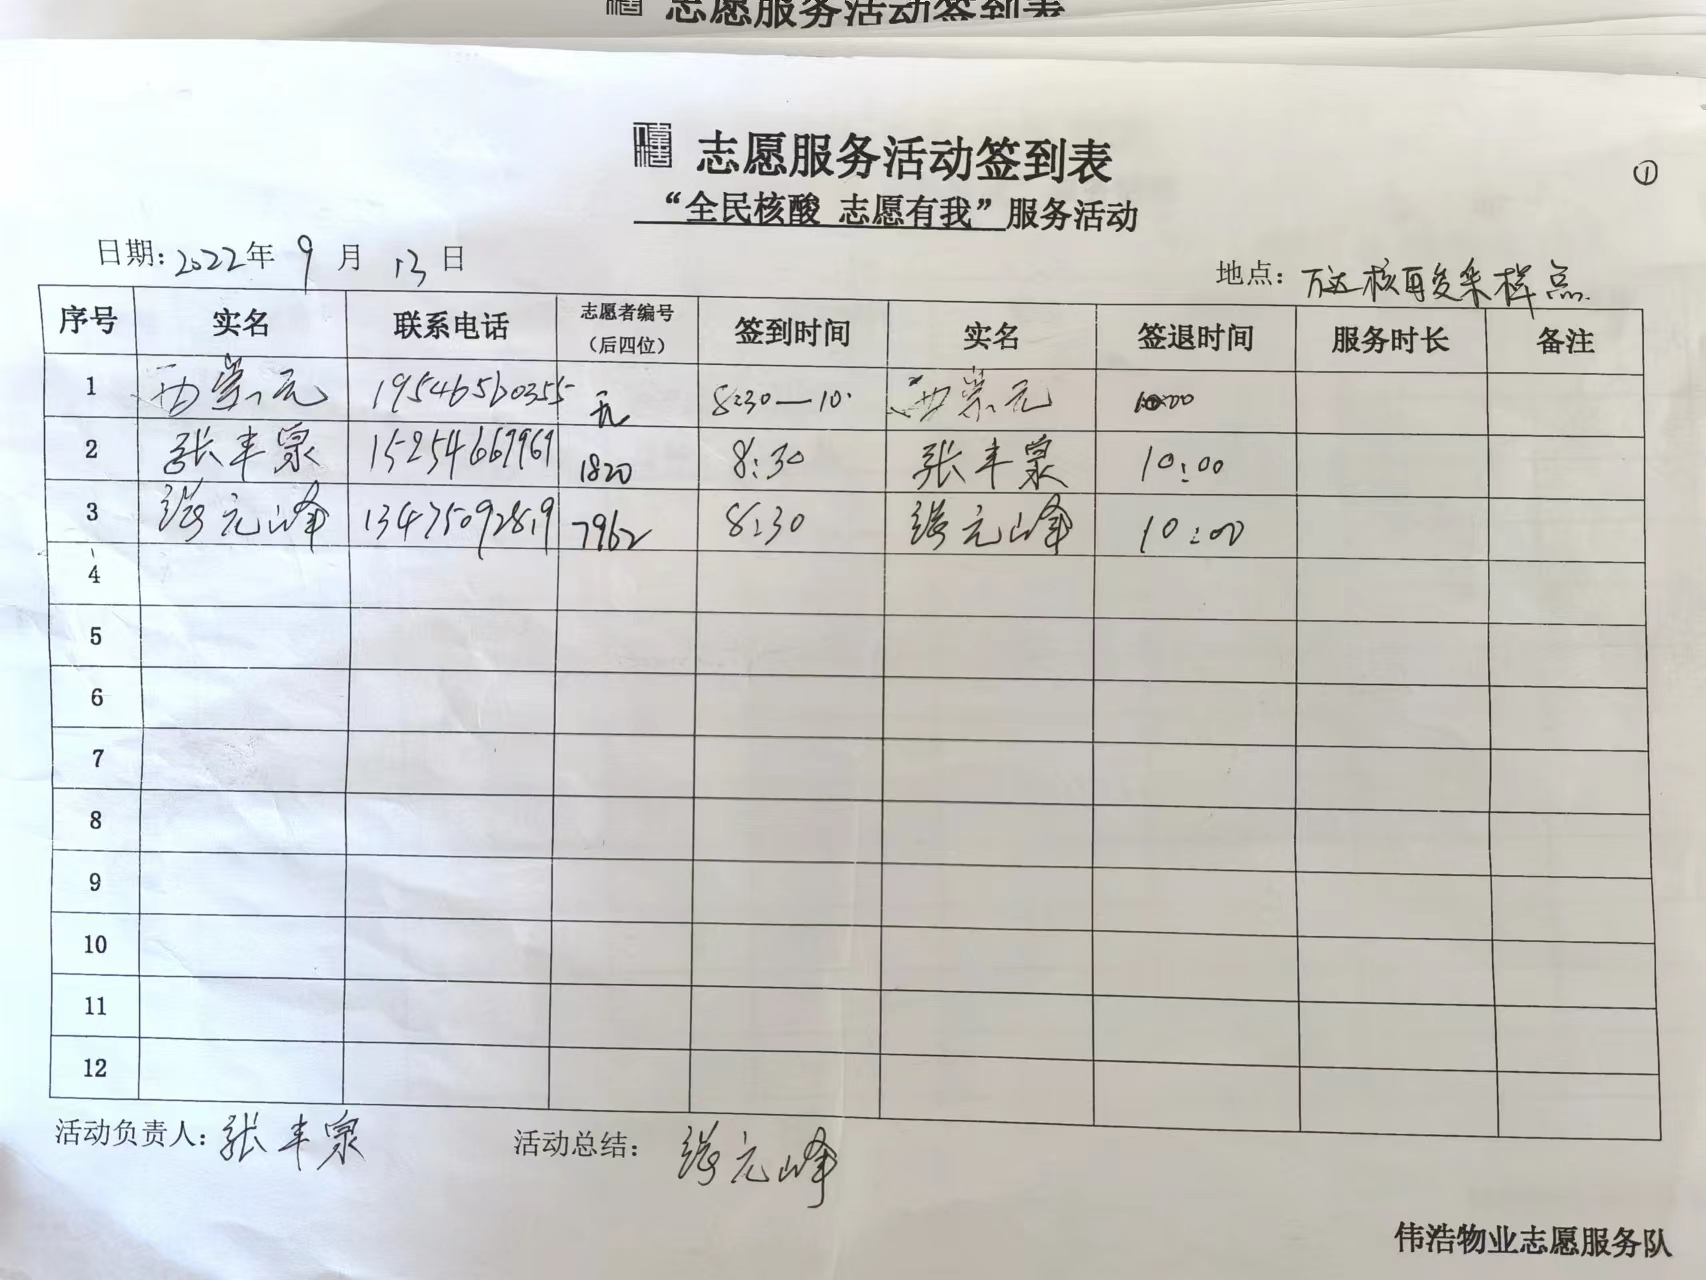 志愿服务活动签到表
志愿服务活动签到表
①
“全民核酸 志愿有我”服务活动
日期：2022年 9 月 13 日
地点：万达核酸采样点
序号 实名 联系电话 志愿者编号（后四位） 签到时间 实名 签退时间 服务时长 备注
1 元 无 8:30—10. 元 10:00
2 张丰泉 15254667961 1820 8:30 张丰泉 10:00
3 元峰 13475092819 7962 8:30 元峰 10:00
4
5
6
7
8
9
10
11
12
活动负责人：张丰泉 活动总结：元峰
伟浩物业志愿服务队